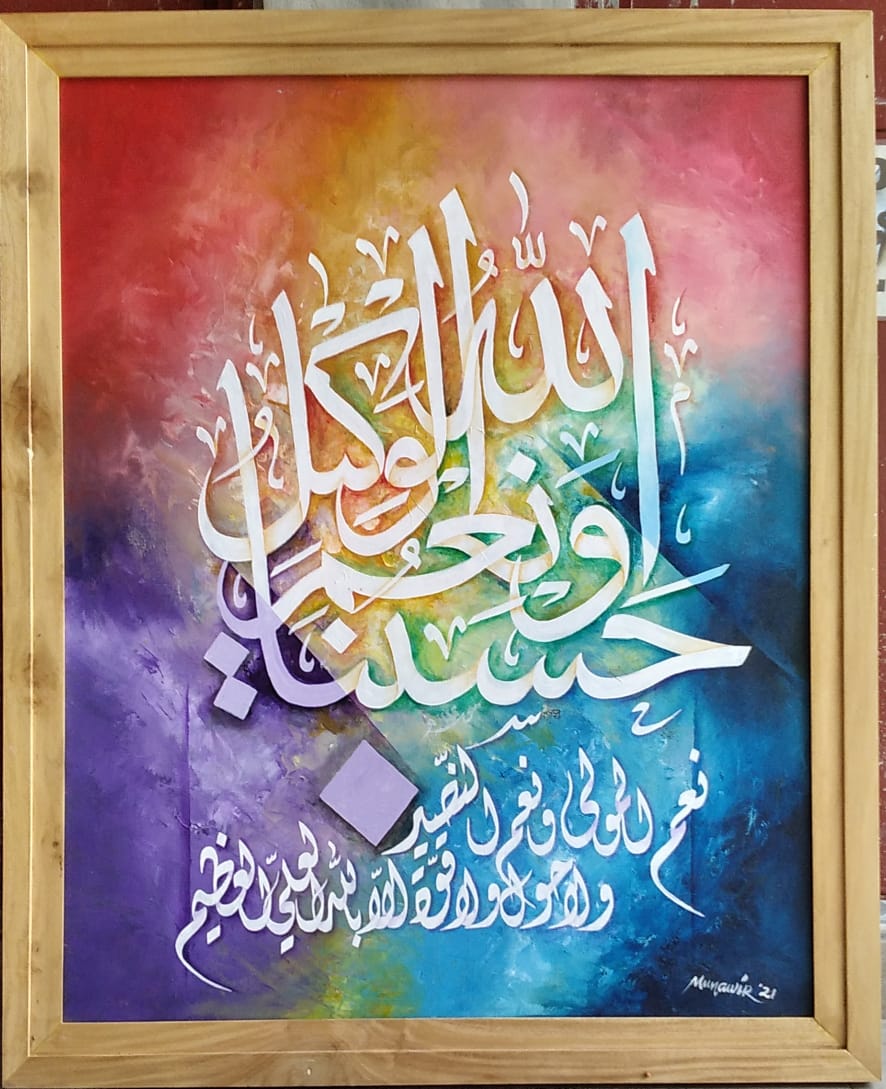 حسبنا الله ونعم الوكيل
نعم المولى ونعم النصير
ولا حول ولا قوة إلا بالله العلي العظيم
Munawir '21